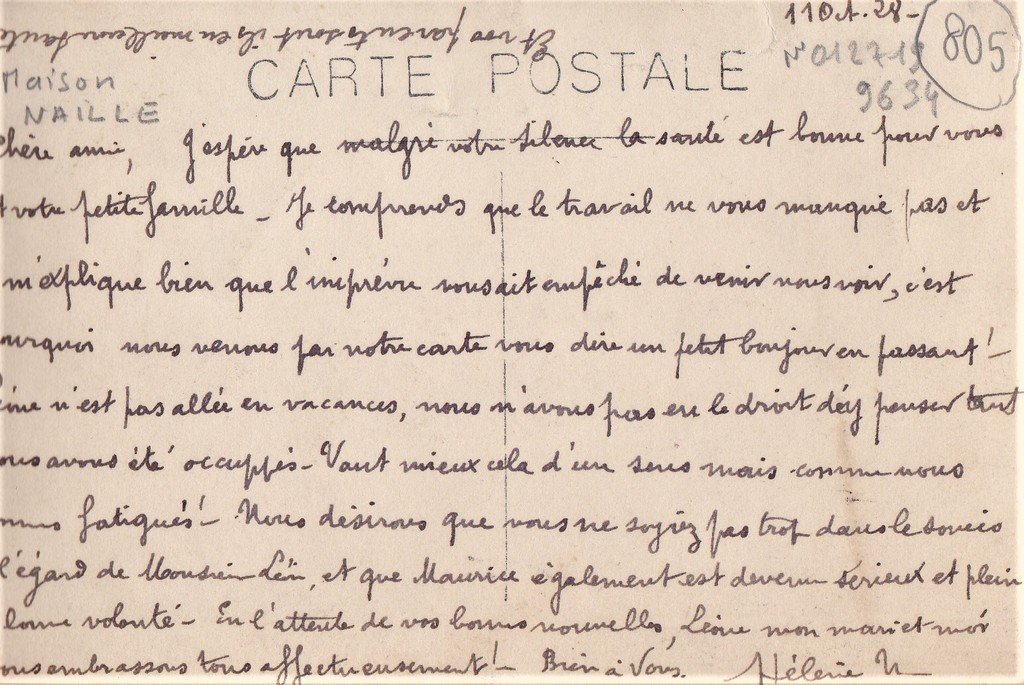 11 Oct. 28 -
Et vos parents sont ils en meilleure santé
805
CARTE POSTALE
N° 012719
9634
Maison
NAILLE
chère amie, J'espère que malgré votre silence la santé est bonne pour vous
et votre petite famille - Je comprends que le travail ne vous manque pas et
m'explique bien que l'imprévu vous ait empêché de venir nous voir, c'est
ourquoi nous venons par notre carte vous dire un petit bonjour en passant! -
n'est pas allée en vacances, nous n'avons pas eu le droit d'y penser tant
ous avons été occuppés - Vaut mieux cela d'un sens mais comme nous
mmes fatigués! - Nous désirons que vous ne soyiez pas trop dans le soucis
l'égard de Monsieur Léon, et que Maurice également est devenu sérieux et plein
bonne volonté - En l'attente de vos bonnes nouvelles, Léone mon mari et moi
ous embrassons tous affectueusement! - Bien à Vous. Hélène N